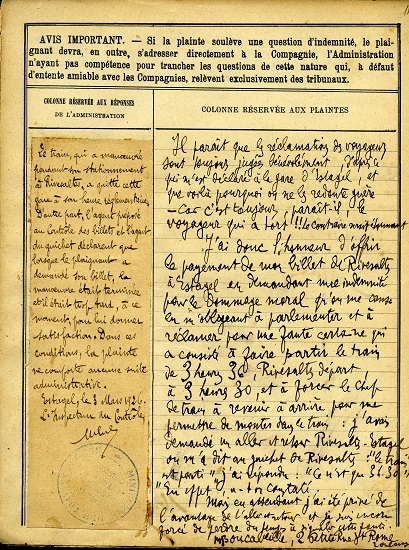 AVIS IMPORTANT. — Si la plainte soulève une question d'indemnité, le plai-
gnant devra, en outre, s'adresser directement à la Compagnie, l'Administration
n'ayant pas compétence pour trancher les questions de cette nature qui, à défaut
d'entente amiable avec les Compagnies, relèvent exclusivement des tribunaux.
COLONNE RÉSERVÉE AUX RÉPONSES
DE L'ADMINISTRATION
Le train, qui a manœuvré
pendant son stationnement
à Rivesaltes, a quitté cette
gare à son heure réglementaire.
D'autre part, l'agent préposé
au Contrôle des billets et l'agent
du guichet déclarent que
lorsque le plaignant a
demandé son billet, la
manœuvre était terminée
et il était trop tard, à ce
moment, pour lui donner
satisfaction. Dans ces
conditions, la plainte
ne comporte aucune suite
administrative.
Estagel, le 3 Mars 1926.
L'Inspecteur du Contrôle,
COLONNE RÉSERVÉE AUX PLAINTES
Il paraît que les réclamations de voyageurs
sont toujours jugées défavorablement, d'après ce
qui m'est déclaré à la gare d'Estagel, et
que voilà pourquoi on ne les redoute guère
— Car c'est toujours, paraît-il, le
voyageur qui a tort !!! Le contraire serait étonnant
J'ai donc l'honneur d'offrir
le payement de mon billet de Rivesaltes
à Estagel en demandant une indemnité
pour le dommage moral qu'on me cause
en m'obligeant à parlementer et à
réclamer pour une faute certaine qui
a consisté à faire partir le train
de 3 heures 36, Rivesaltes départ,
à 3 heures 30, et à forcer le chef
de train à revenir en arrière pour me
permettre de monter dans le train : j'avais
demandé un aller et retour Rivesaltes-Estagel
on m'a dit au guichet de Rivesaltes : "le train
est parti" j'ai répondu : "Ce n'est que 3 h. 30"
"En effet", a-t-on constaté.
Mais en attendant j'ai été privé de
l'avantage de l'aller retour et je suis encore
forcé de perdre du temps